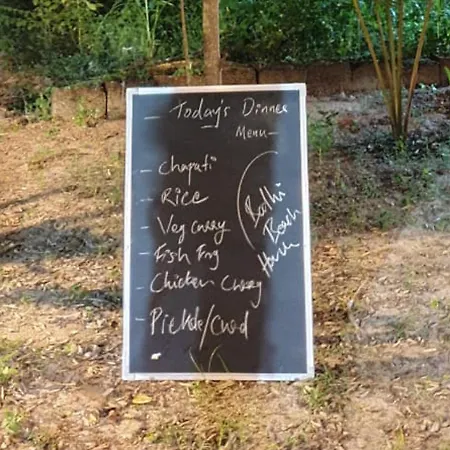 - Today's Dinner
Menu-
- Chapati
- Rice
- Veg curry
- Fish Fry
- Chicken Curry
- Pickle/Curd
Bodhi
Beach
House